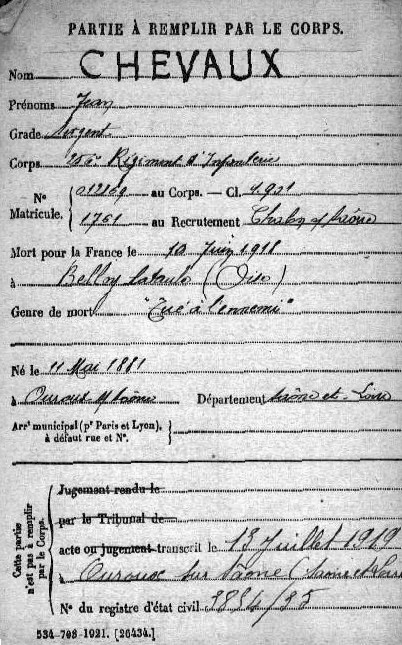 PARTIE À REMPLIR PAR LE CORPS.
Nom CHEVAUX
Prénoms Jean
Grade Sergent
Corps Régiment d'Infanterie
Nº Matricule. au Corps. — Cl. 1.901
1761 au Recrutement Chalon s/ Saône
Mort pour la France le 10 Juin 1918
à Belloy (Oise)
Genre de mort "Tué à l'ennemi"
Né le 11 Mai 1881
à Ouroux s/ Saône Département Saône-et-Loire
Arrt municipal (pr Paris et Lyon), à défaut rue et Nº.
Cette partie n'est pas à remplir par le Corps.
Jugement rendu le
par le Tribunal de
acte ou jugement transcrit le 13 Juillet 1919
à Ouroux sur Saône (Saône et Loire
Nº du registre d'état civil
534-708-1921. [26434.]